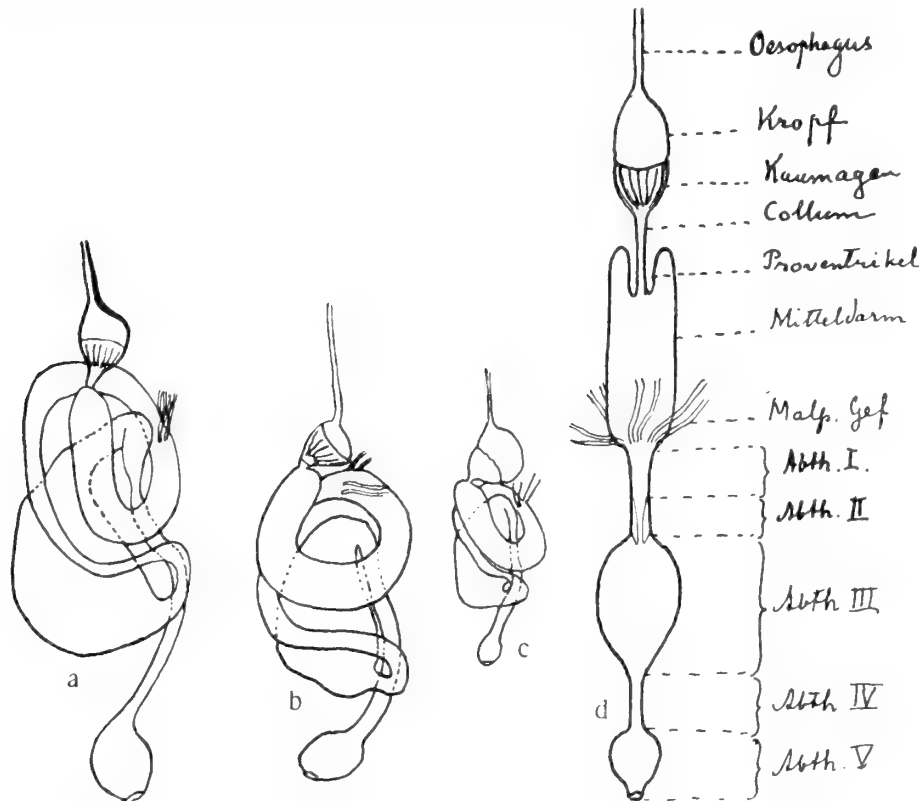 Oesophagus
Kropf
Kaumagen
Collum
Proventrikel
Mitteldarm
Malp. Gef
Abth. I.
Abth. II
Abth III
Abth IV
Abth. V
a
b
c
d